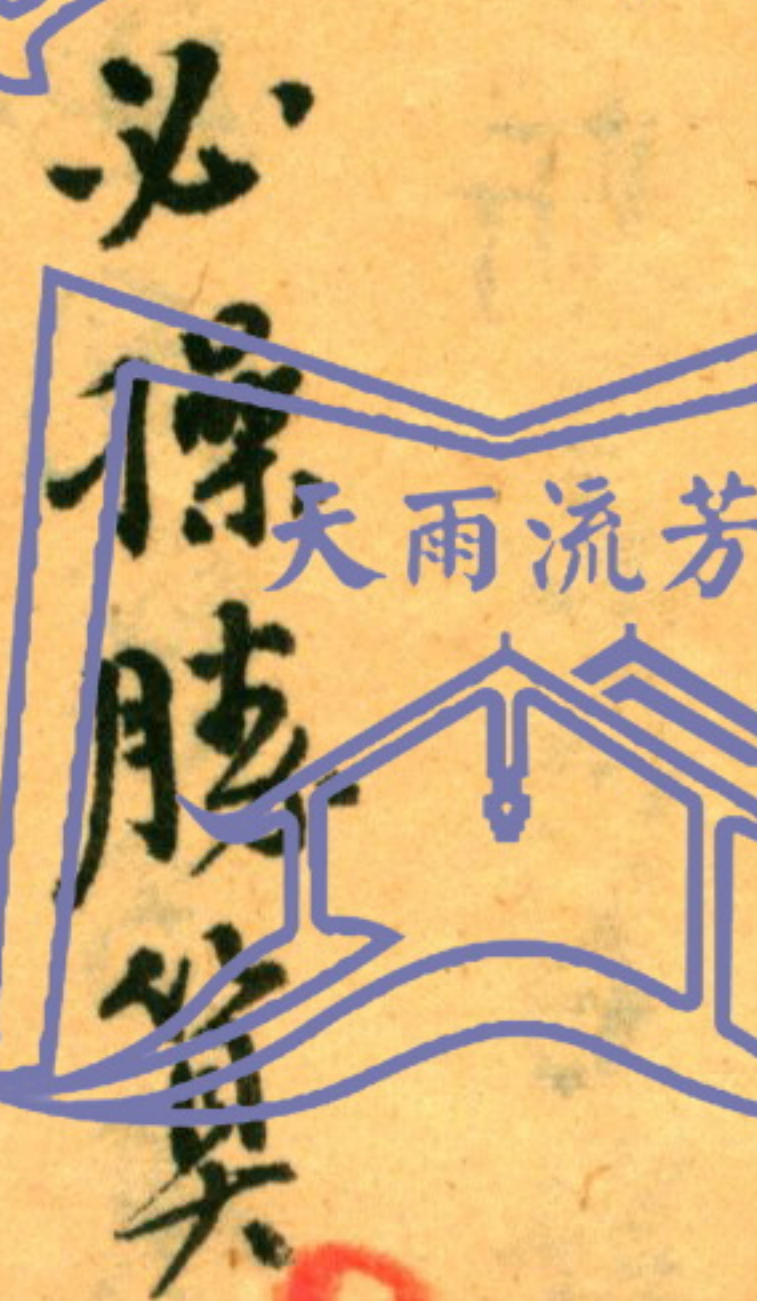 必操勝算
天雨流芳